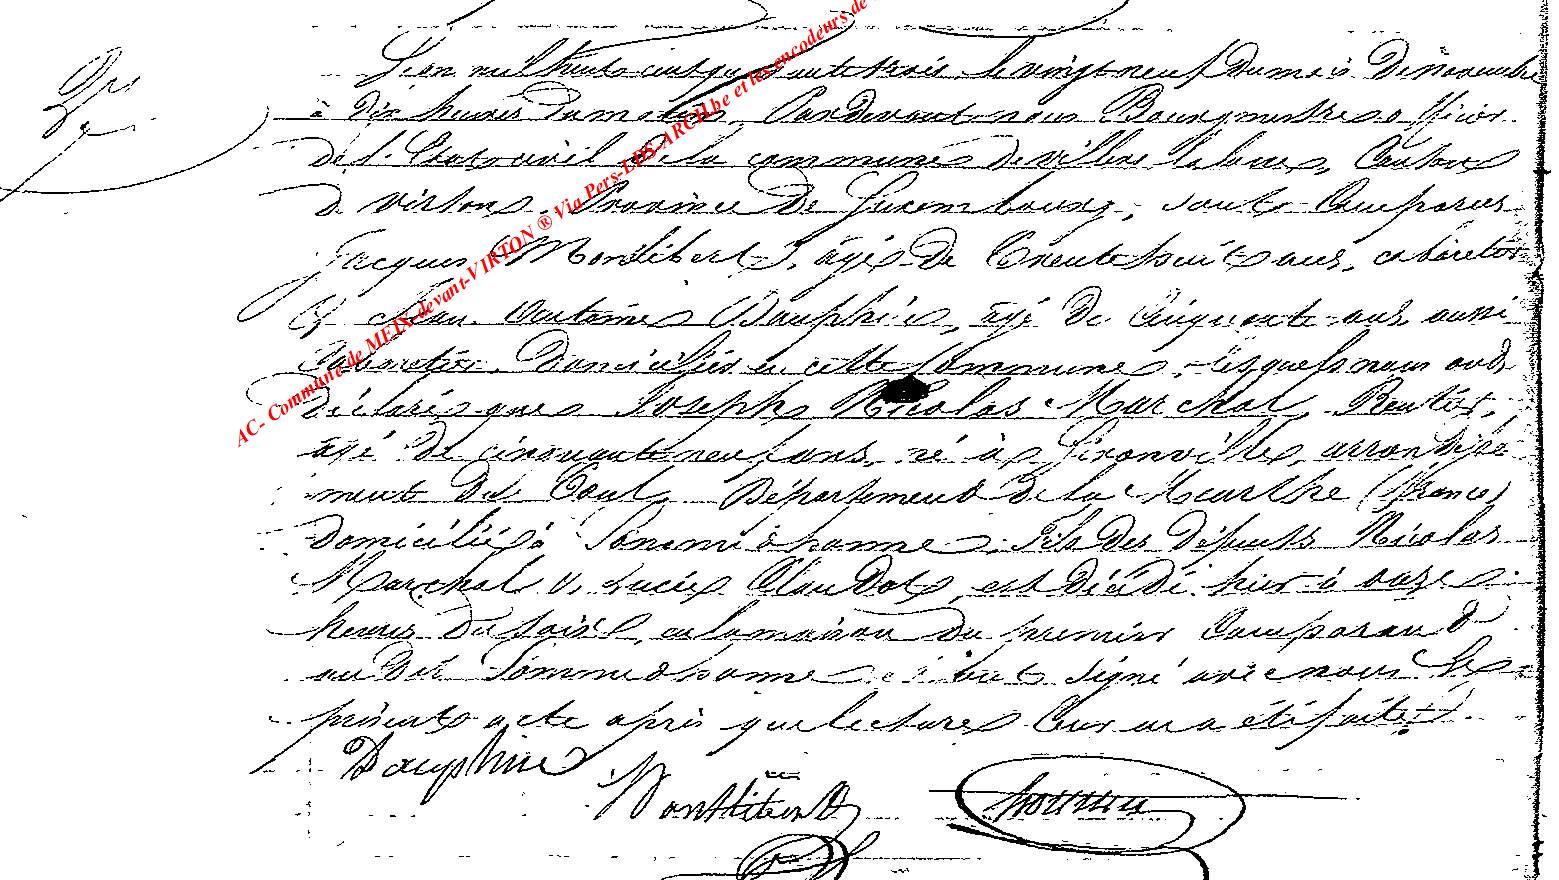 L'an mil huit cent quarante trois le vingt neuf du mois de novembre
à dix heures du matin, Pardevant nous Bourgmestre officier
de l'Etat civil de la commune de villers la loue, Canton
de virton, Province de Luxembourg, sont Comparus
Jacques Montlibert, âgé de trente huit ans, cabaretier
& Jean Dauphin, âgé de Cinquante ans aussi
Cabaretier, domiciliés en cette Commune, lesquels nous ont
déclaré que Joseph Nicolas Marchal, Rentier,
âgé de cinquante neuf ans, né à Gironville, arrondisse
ment de Toul, Département de la Meurthe (France)
domicilié à Sommethonne, fils des défunts Nicolas
Marchal & Lucie Claudot, est décédé hier à onze
heures du soir, en la maison du premier Comparant
au dit Sommethonne & ont signé avec nous le
présent acte après que lecture leur en a été faite.
Dauphin
Montlibert
AC- Commune de MEIX-devant-VIRTON ® Via Pers-LDS-ARCH.be et les encodeurs de